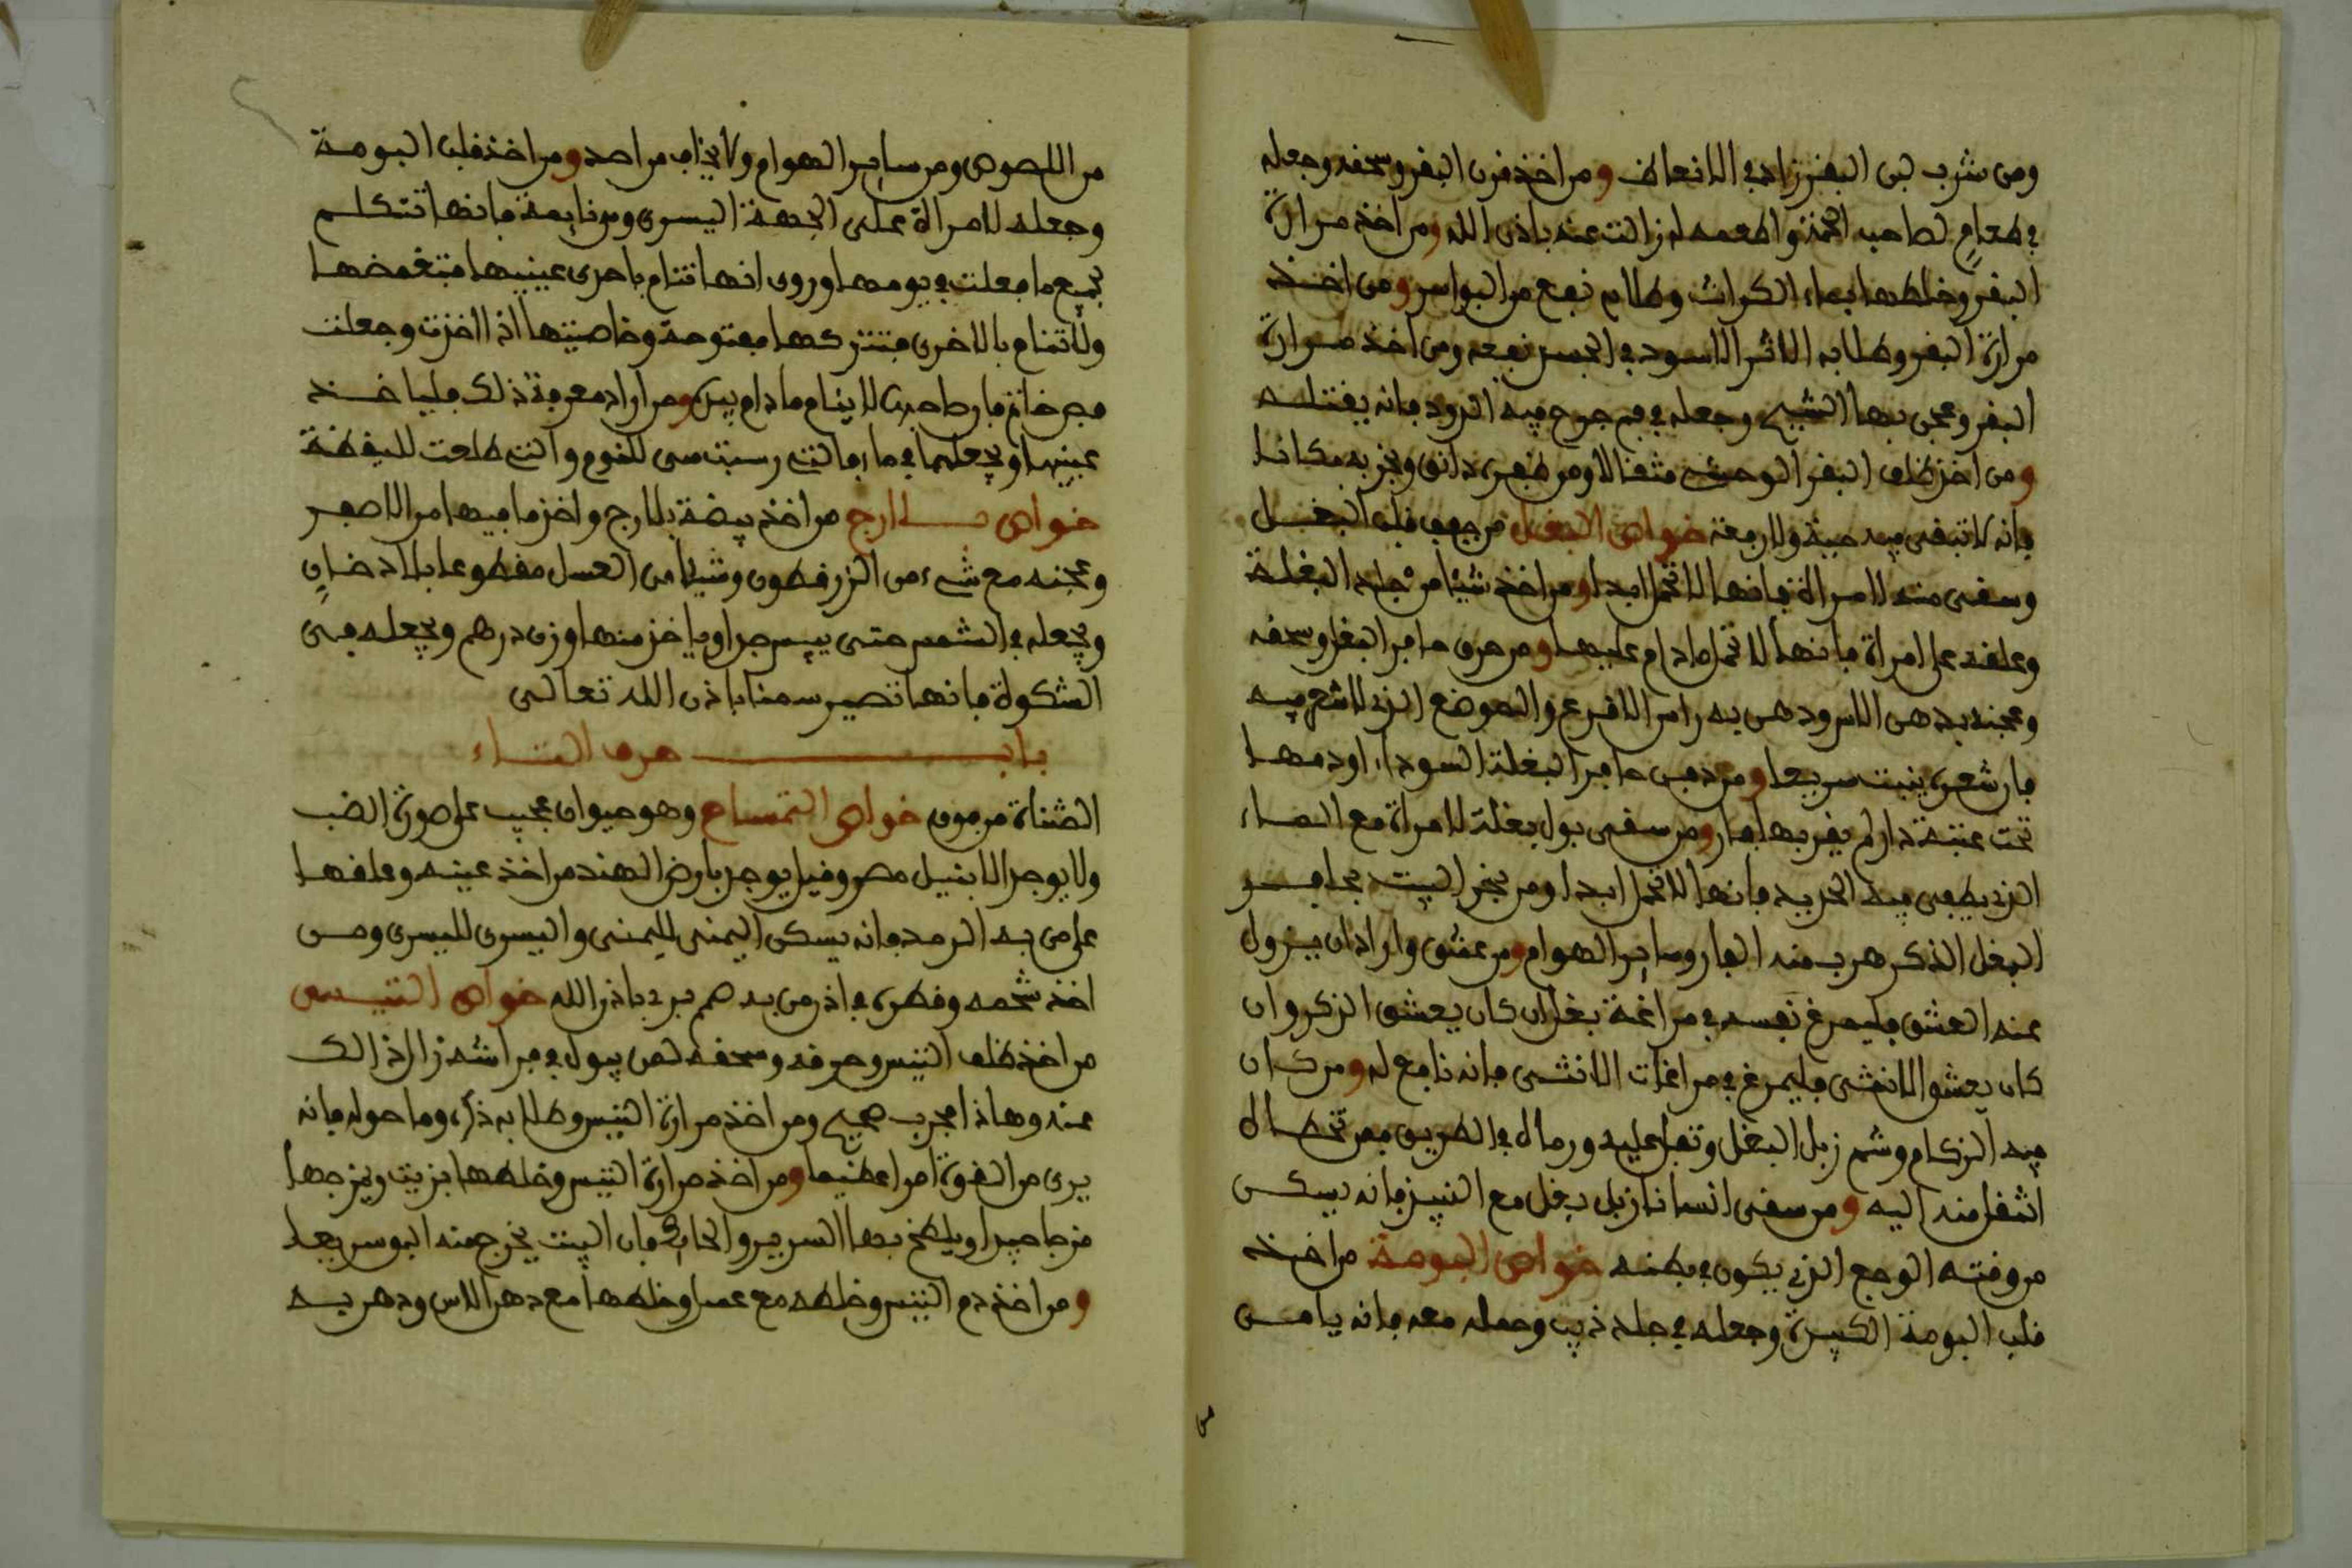 ومن شرب لبن البقر زاد في الانعاظ ومن اخذ قرن البقر وسحقه وجعله
في طعام لصاحب الحمى واطعمه له زالت عنه باذن الله ومن اخذ مرارة
البقر وخلطها بماء الكراث وطلا به نفع من البواسر ومن اخذ
مرارة البقر وطلا به الاثر الاسود في الجسد نفعه ومن اخذ مرارة
البقر وعجن بها الشيح وجعله في فم جرح فيه الدود فانه يقتله
ومن اخذ ظلف البقر الوحشي مثقالا ومن ظفره دانق وبخر به مكانا
فانه لا تبقى فيه حية ولا رمعة خواص البغل من جفف قلب البغل
وسقى منه لامراة فانها لا تحمل ابدا ومن اخذ شيئا من جلد البغلة
وعلقه على امراة فانها لا تحمل ما دام عليها ومن حرق حافر البغل وسحقه
وعجنه بدهن الاس ودهن به راس الاقرع والموضع الذي لا شعر فيه
فان شعره ينبت سريعا ومن دفن حافر البغلة السوداء او دمها
تحت عتبة دار لم يقربها فار ومن سقى بول بغلة لامراة مع الماء
الذي يطفى فيه الحديد فانها لا تحمل ابدا ومن بخر البيت بحافر
البغل الذكر هرب منه الفار وساير الهوام ومن عشق واراد ان يزول
عنه العشق فليمرغ نفسه في مراغة بغل ان كان يعشق الذكر وان
كان يعشق الانثى فليمرغ في مراغات الانثى فانه نافع له ومن كان
فيه الزكام وشم زبل البغل وتفل عليه ورماه في الطريق فمن تخطاه
انتقل منه اليه ومن سقى انسانا زبل بغل مع النبيذ فانه يسكن
من وقته الوجع الذي يكون في بطنه خواص البومة من اخذ
قلب البومة الكبيرة وجعله في جلد ذيب وحمله معه فانه يامن
من اللصوص ومن ساير الهوام ولا يخاف من احد ومن اخذ قلب البومة
وجعله لامراة على الجهة اليسرى ومن نايمة فانها تتكلم
بجميع ما فعلت في يومها وروى انها تنام باحدى عينيها فتغمضها
ولا تنام بالاخرى فتتركها مفتوحة وخاصيتها اذا اخذت وجعلت
فص خاتم فان صاحبه لا ينام ما دام بيده ومن اراد معرفة ذلك فلياخذ
عينيها ويجعلهما في ماء فالتي رسبت هي للنوم والتي طلعت لليقظة
خواص بلارج من اخذ بيضة بلارج واخذ ما فيها من الاصفر
وعجنه مع شيء من الزرقطون وشيئا من العسل مقطوعا بلا دخان
ويجعله في الشمس حتى ييبس جدا وياخذ منها وزن درهم ويجعله في
الشكوة فانها تصير سمنا باذن الله تعالى
باب حرف التاء
المثناة من فوق خواص التمساح وهو حيوان عجيب على صورة الضب
ولا يوجد الا بنيل مصر وقيل يوجد بارض الهند من اخذ عينه وعلقها
على من به الرمد فانه يسكن اليمنى لليمنى واليسرى لليسرى ومن
اخذ شحمه وقطره في اذن من به صمم برئ باذن الله خواص التيس
من اخذ ظلف التيس وحرقه وسحقه لمن يبول في فراشه زال ذالك
عنه وهاذا مجرب صحيح ومن اخذ مرارة التيس وطلا به ذكره وما حوله فانه
يرى من القوة امرا عظيما ومن اخذ مرارة التيس وخلطها بزيت ويمزجها
مزجا جيدا ويلطخ بها السرير والحايط فان البيت يخرج منه البق سريعا
ومن اخذ دم التيس وخلطه مع عسل وخلطها مع دهن الاس ودهن به